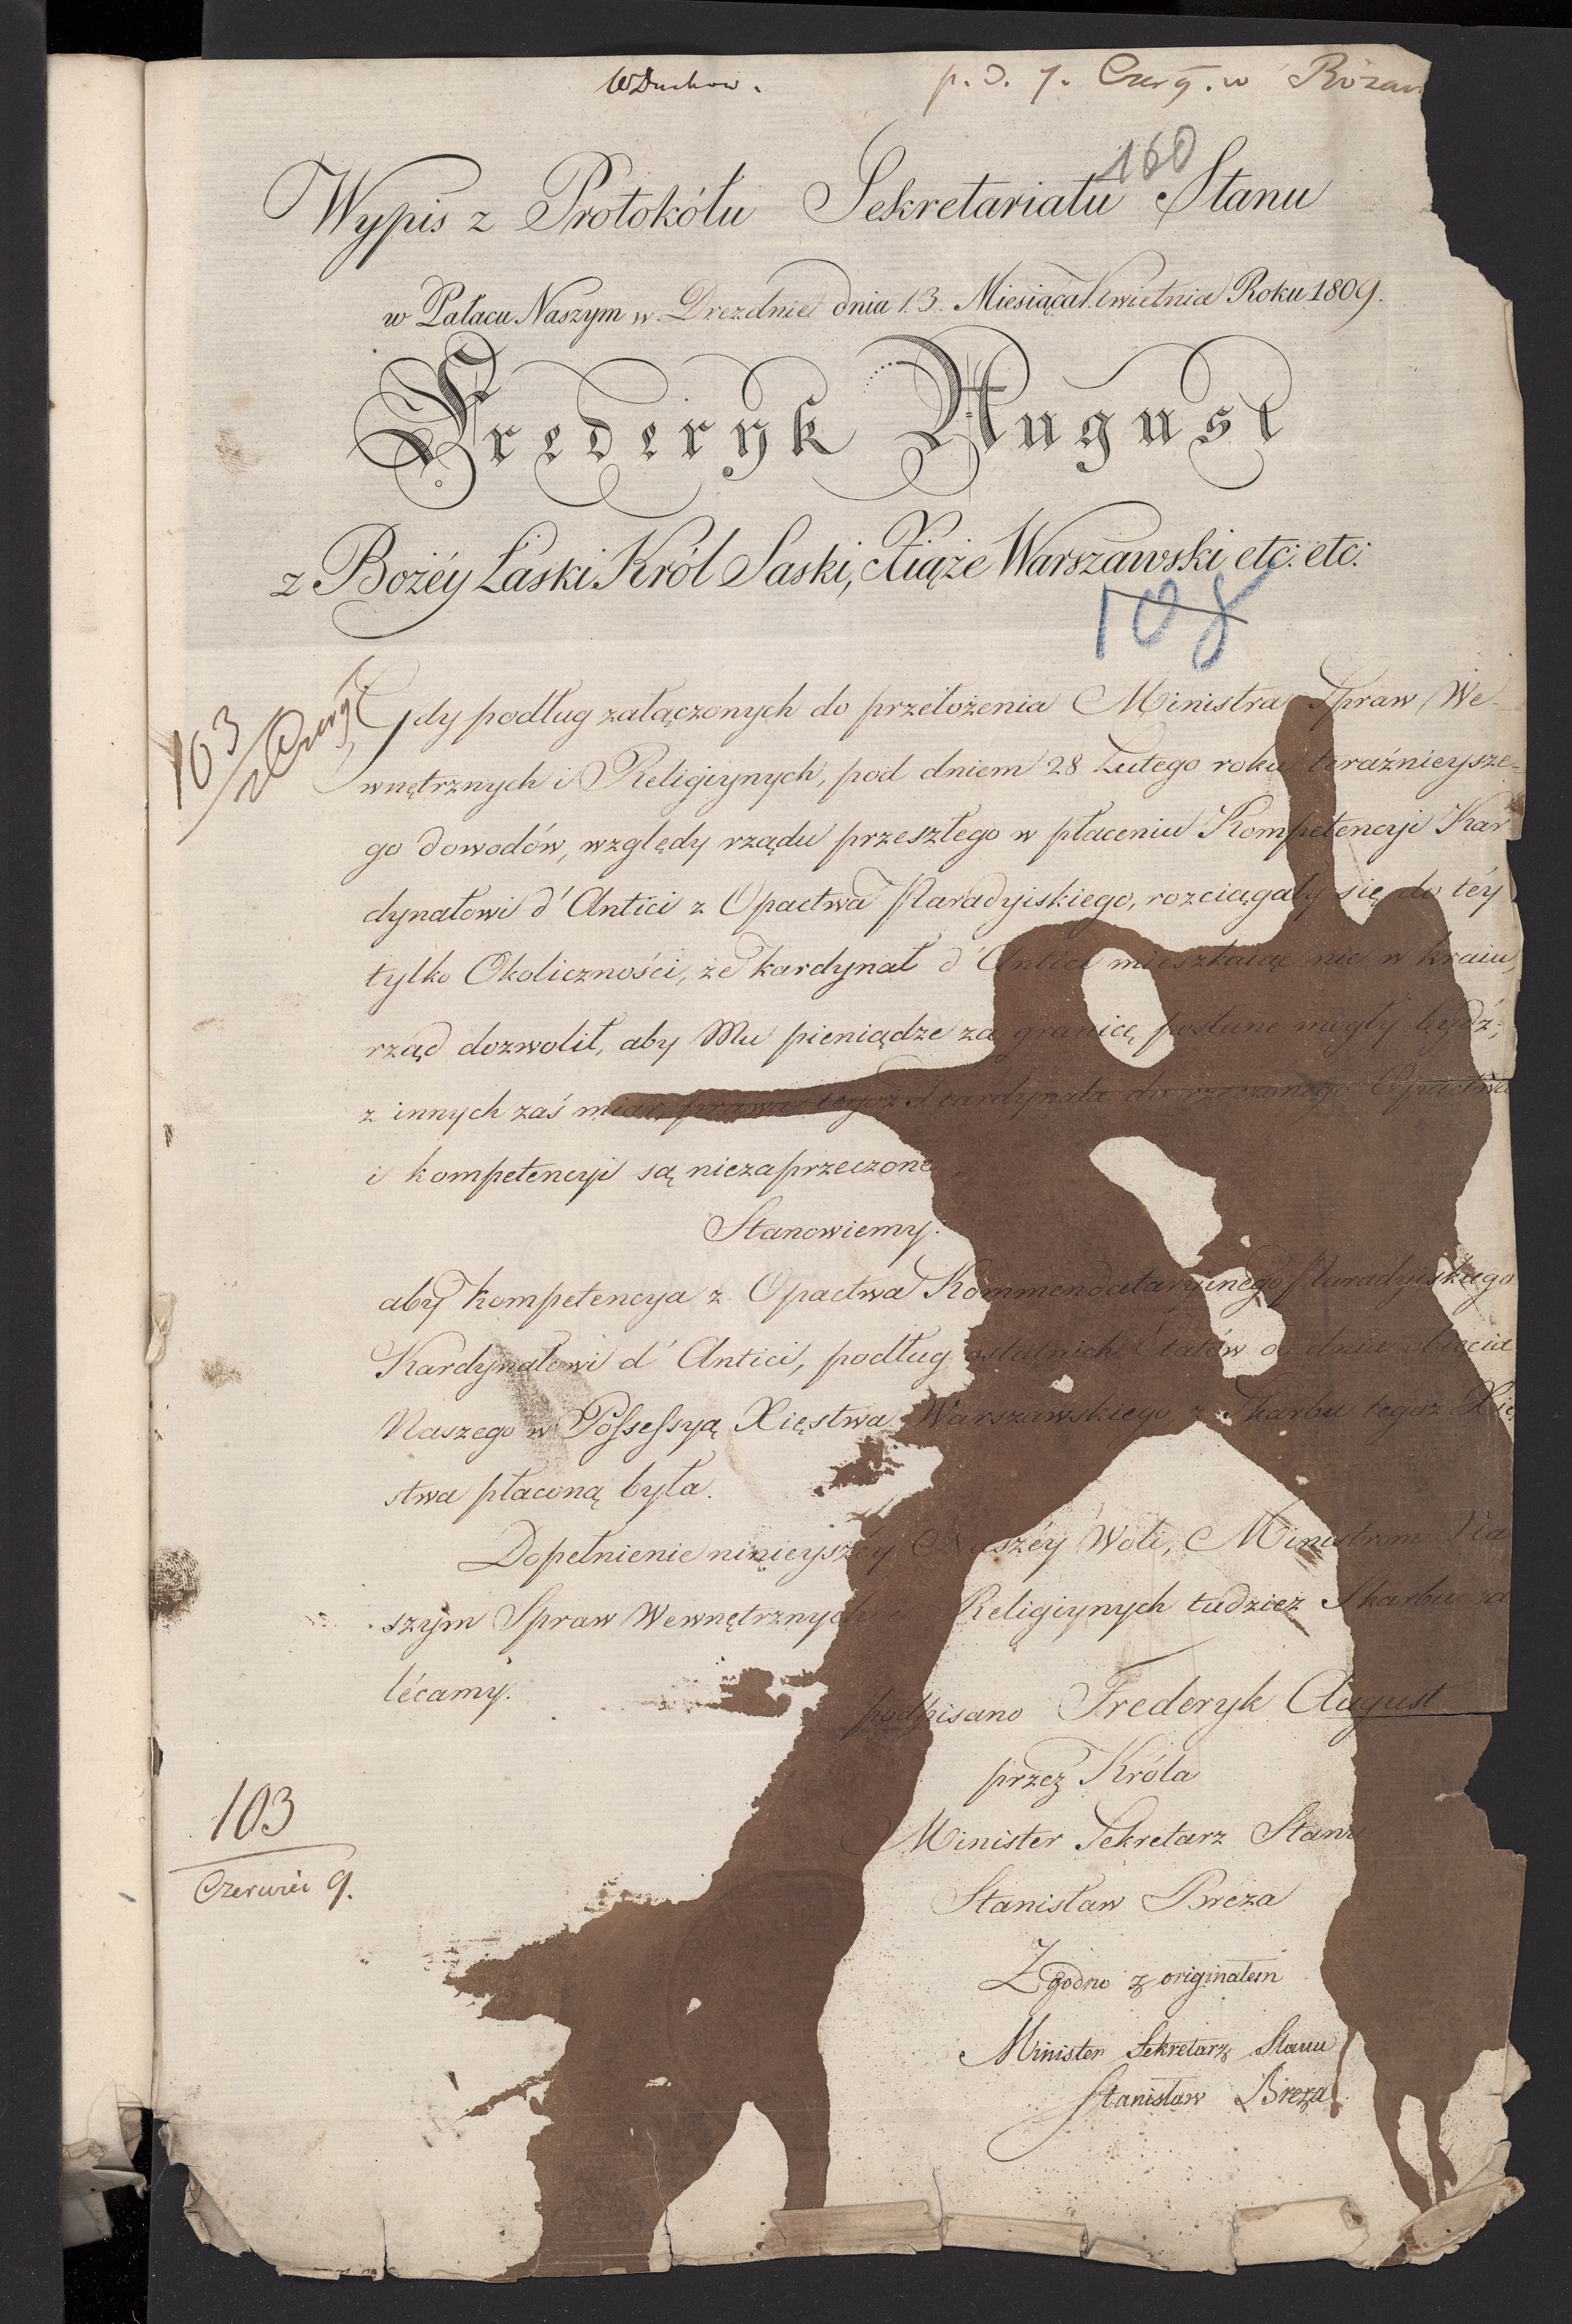 W Duchow.
p. d. 7. Czerw. w
160
Wypis z Protokółu Sekretariatu Stanu
w Pałacu Naszym w Dreznie dnia 13. Miesiąca Kwietnia Roku 1809.
Frederyk August
z Bożéy Łaski Król Saski, Xiąże Warszawski etc: etc:
108
103
Gdy podług załączonych do przełożenia Ministra Spraw We-
wnętrznych i Religiynych, pod dniem 28 Lutego roku teraźnieysze-
go dowodów, względy rządu przeszłego w płaceniu Kompetencyi Kar
dynałowi d'Antici z Opactwa Paradyiskiego, rozciągały się do téy
tylko Okoliczności, że kardynał d'Antici mieszkaiąc nie w kraiu,
rząd dozwolił, aby Mu pieniądze za granicę posłane mogły bydź;
z innych zaś miar, prawa tegoż Kardynała do rzeczonego Opactwa
i kompetencyi są niezaprzeczone,
Stanowiemy:
aby kompetencya z Opactwa Kommendataryinego Paradyiskiego
Kardynałowi d'Antici, podług ostatnich Etatów od dnia obięcia
Naszego w Possessyą Xięstwa Warszawskiego, z Skarbu tegoż Xię
stwa płaconą była.
Dopełnienie ninieyszéy Naszéy Woli, Ministrom Na
szym Spraw Wewnętrznych Religiynych tudzież Skarbu za
lécamy.
podpisano Frederyk August
przez Króla
Minister Sekretarz Stanu
Stanisław Breza
103
Czerwiec 9.
Zgodno z originałem
Minister Sekretarz Stanu
Stanisław Breza